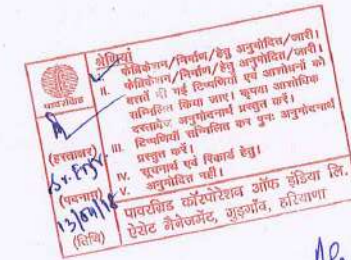 श्रेणियां
फेब्रिकेशन/निर्माण/हेतु अनुमोदित/जारी।
II. फेब्रिकेशन/निर्माण/हेतु अनुमोदित/जारी।
बशर्ते की गई टिप्पणियां एवं आशोधनों को
सम्मिलित किया जाए। कृपया आशोधित
दस्तावेज अनुमोदनार्थ प्रस्तुत करें।
III. टिप्पणियां सम्मिलित कर पुनः अनुमोदनार्थ
प्रस्तुत करें।
IV. सूचनार्थ एवं रिकार्ड हेतु।
V. अनुमोदित नहीं।
पावरग्रिड
(हस्ताक्षर)
Sr. Engr.
(पदनाम)
(तिथि)
पावरग्रिड कॉरपोरेशन ऑफ इंडिया लि.
ऐसेट मैनेजमेंट, गुड़गाँव, हरियाणा